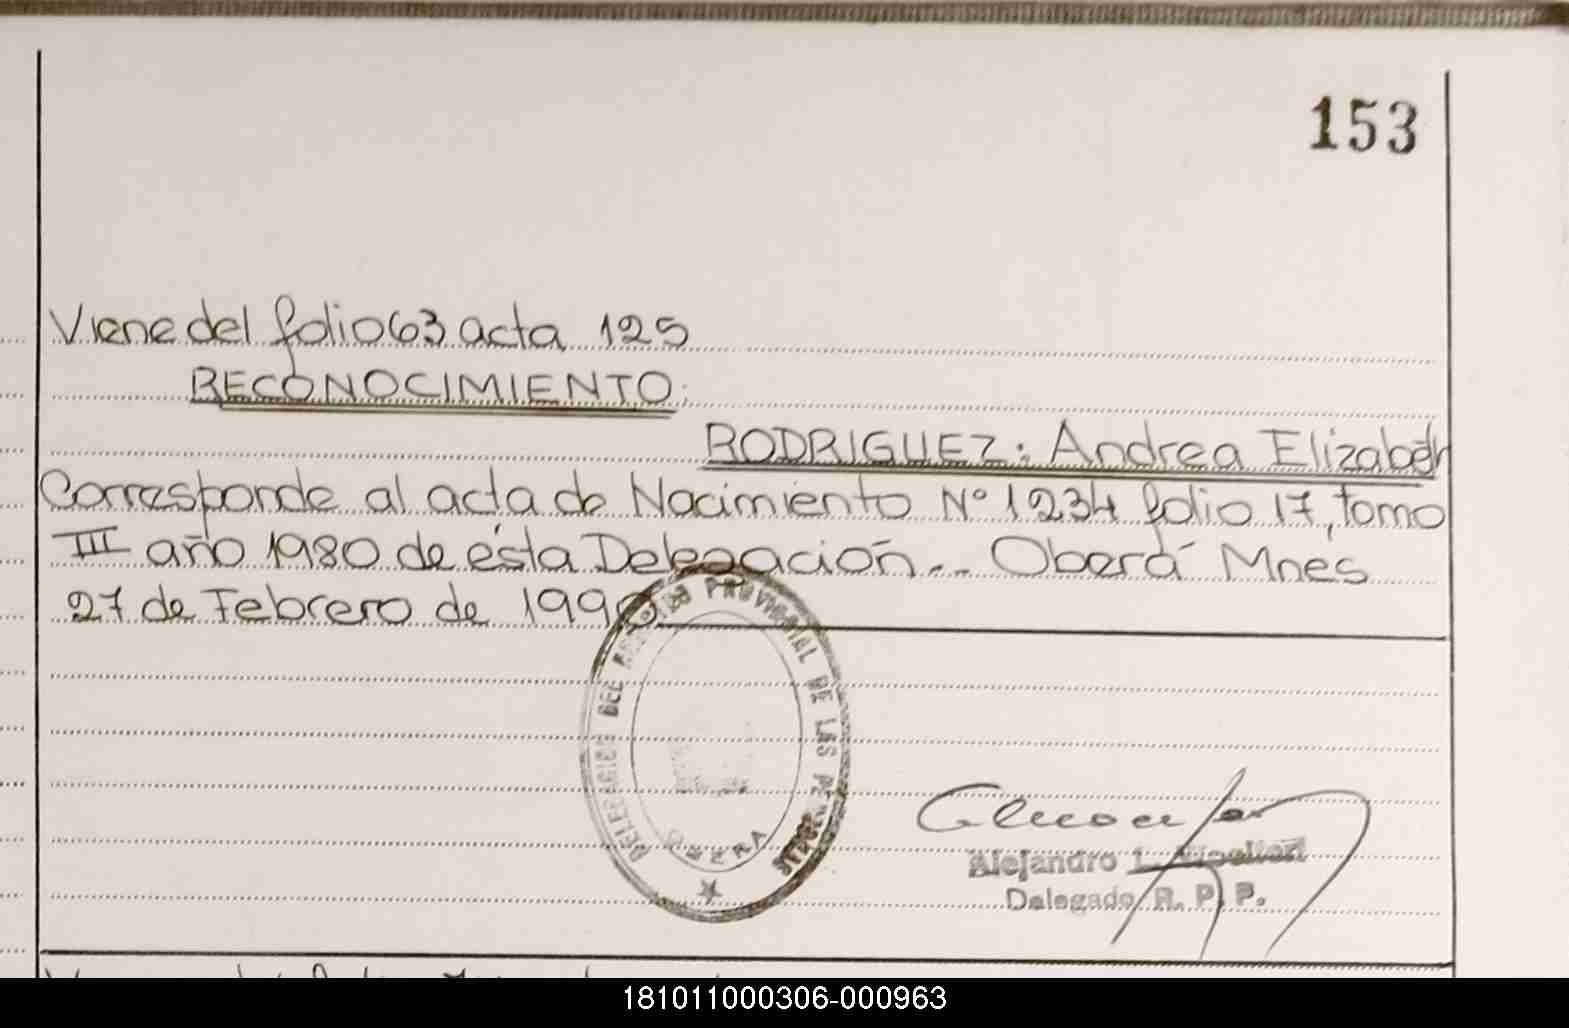 153
Viene del folio 63 acta 125
RECONOCIMIENTO:
RODRIGUEZ: Andrea Elizabeth
Corresponde al acta de Nacimiento Nº 1234 folio 17, tomo
III año 1980 de ésta Delegación.. Oberá Mnes
27 de Febrero de 1990
DELEGACION DEL REGISTRO PROVINCIAL DE LAS PERSONAS
OBERA
Alejandro I.
Delegado R. P. P.
181011000306-000963